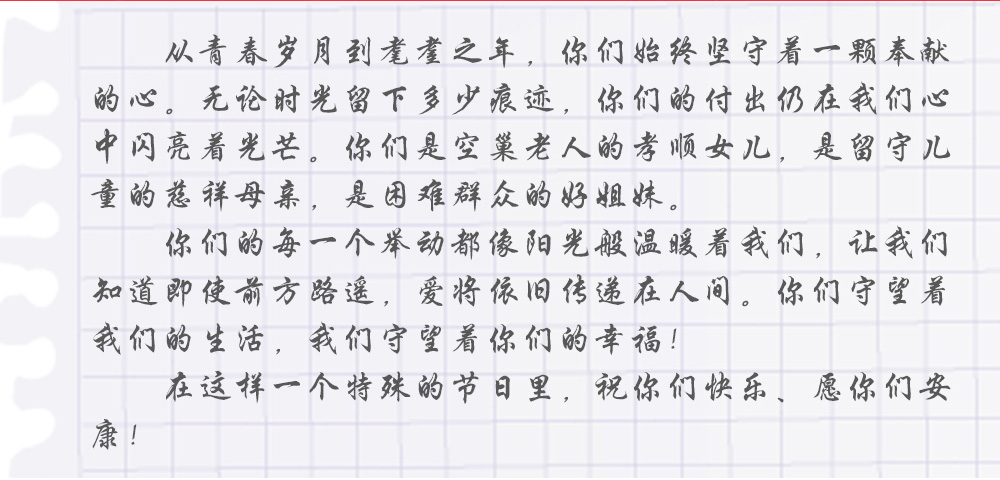 从青春岁月到耄耋之年，你们始终坚守着一颗奉献
的心。无论时光留下多少痕迹，你们的付出仍在我们心
中闪亮着光芒。你们是空巢老人的孝顺女儿，是留守儿
童的慈祥母亲，是困难群众的好姐妹。
你们的每一个举动都像阳光般温暖着我们，让我们
知道即使前方路遥，爱将依旧传递在人间。你们守望着
我们的生活，我们守望着你们的幸福！
在这样一个特殊的节日里，祝你们快乐、愿你们安
康！